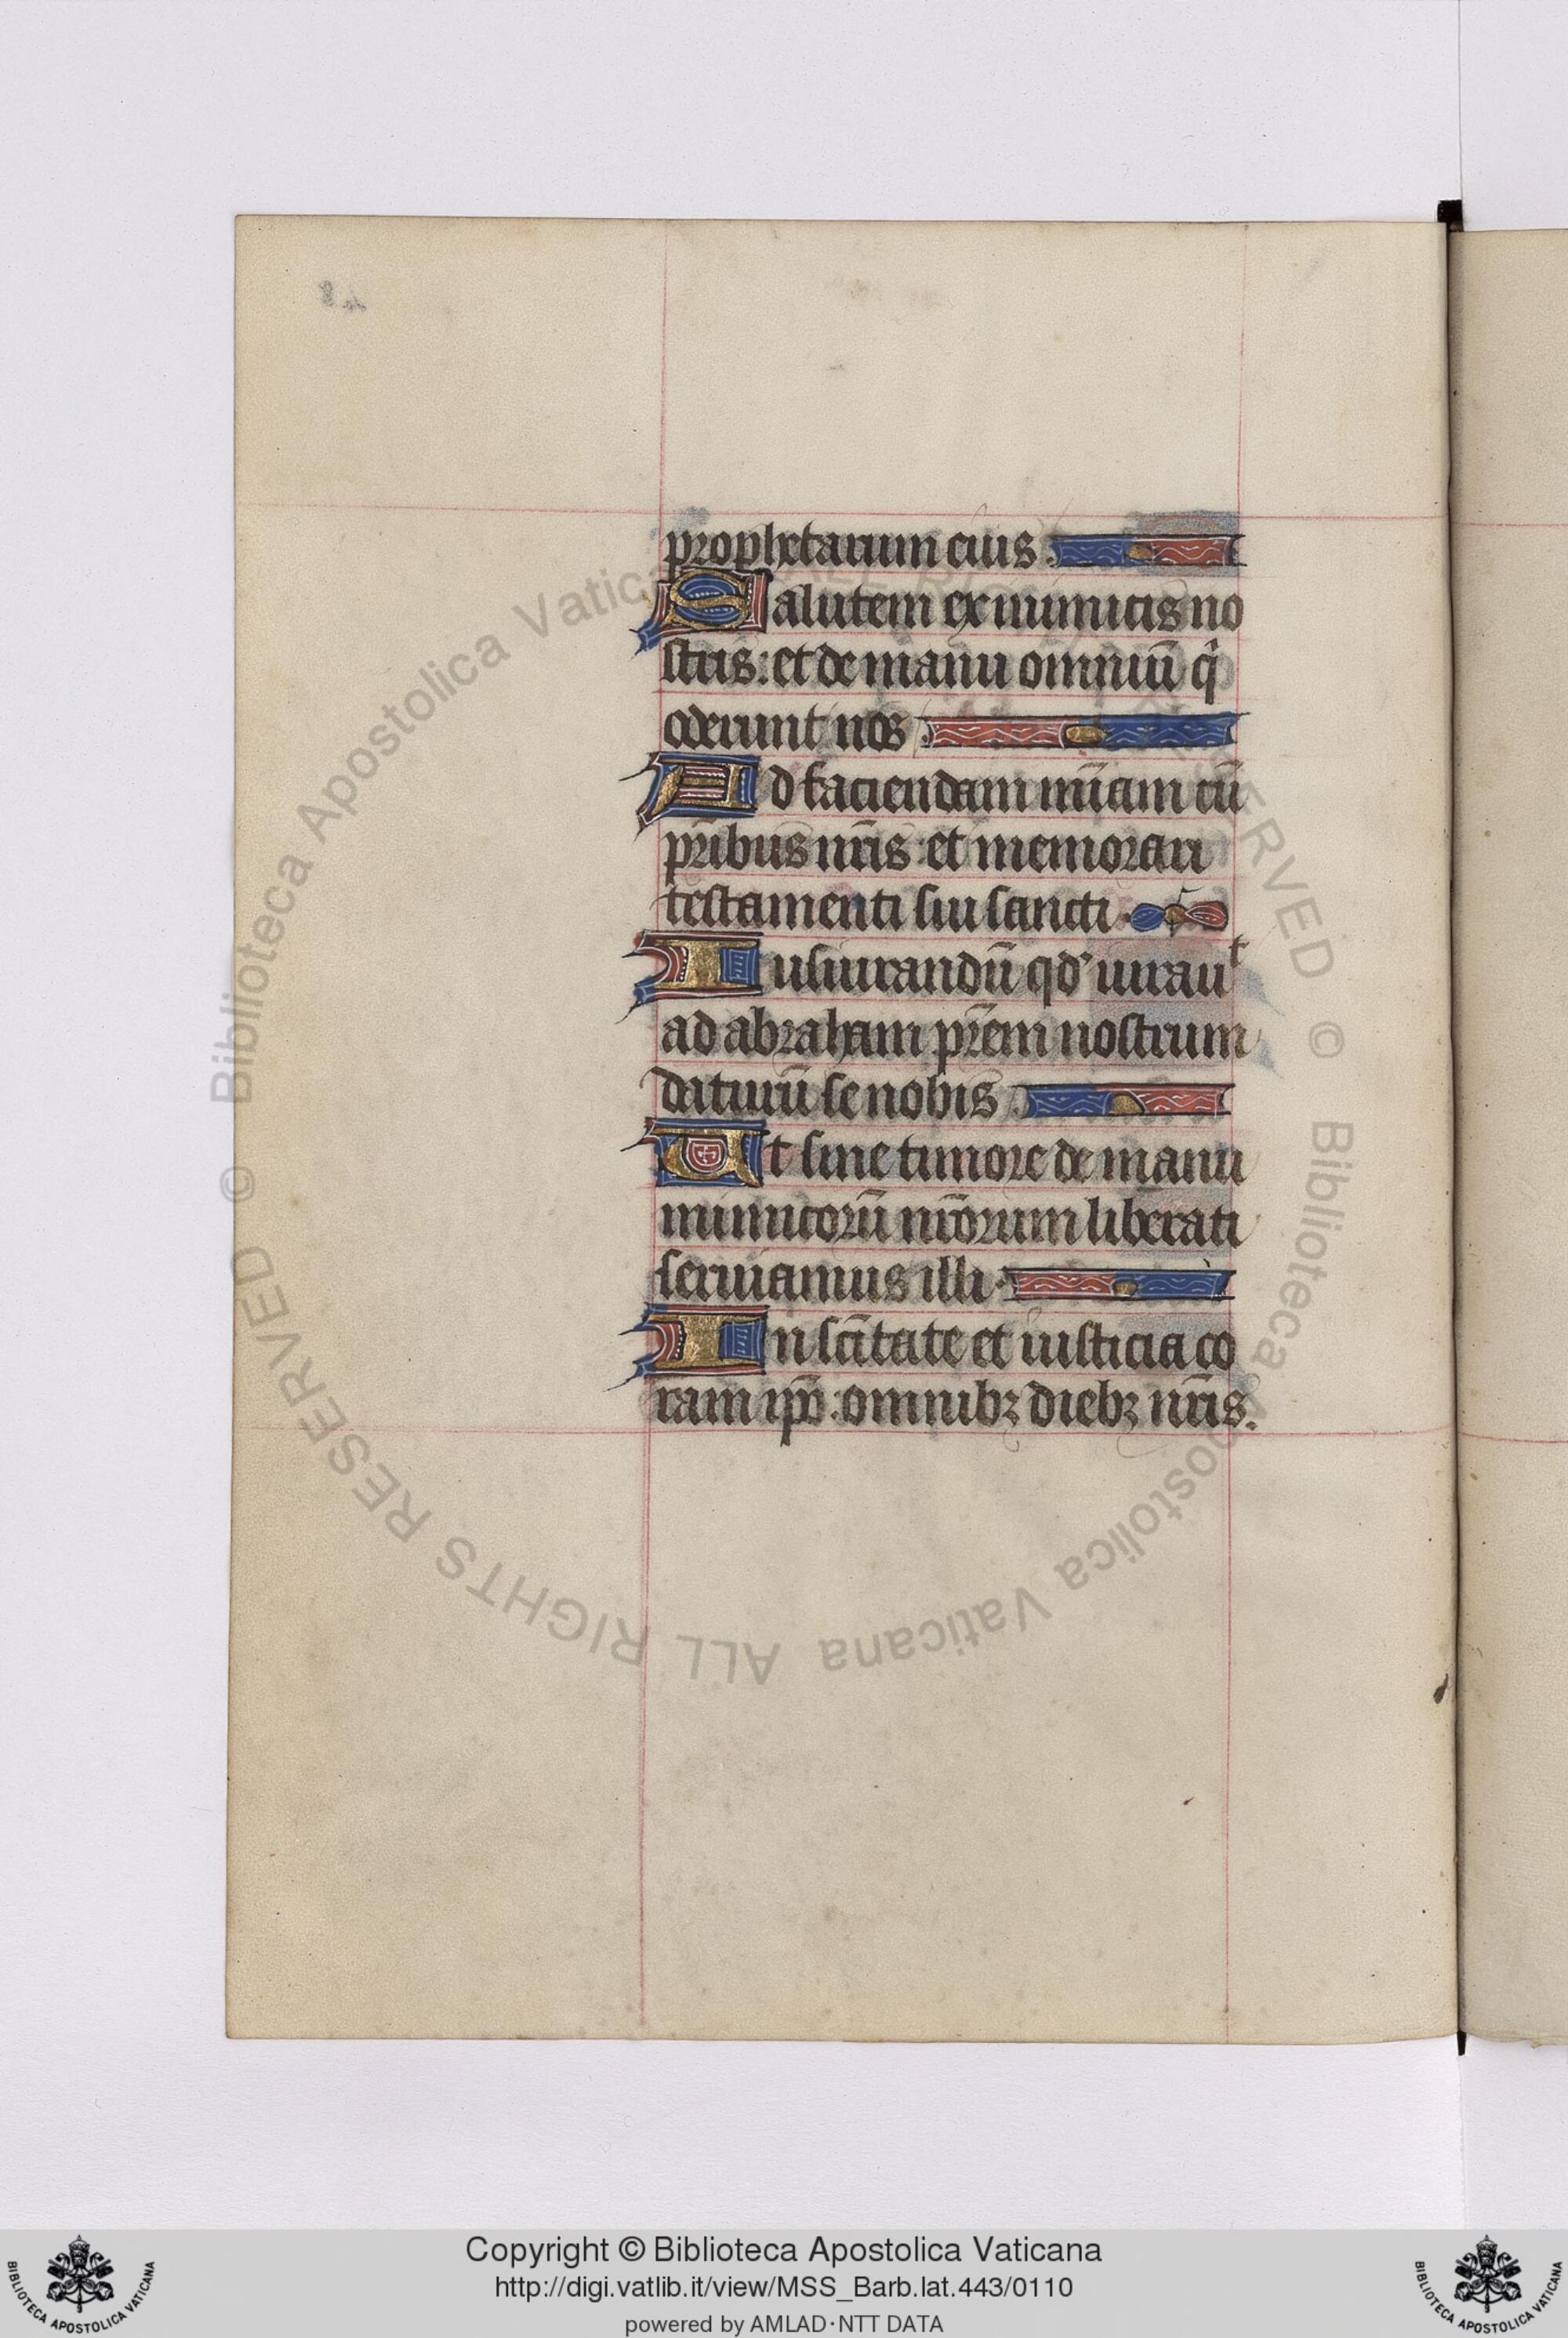 prophetarum eius.
Salutem ex inimicis no
stris: et de manu omniū qͥ
oderunt nos
Ad faciendam mīam cū
pr̄ibus nr̄is: et memorari
testamenti sui sancti.
Iusiurandū qd’ iurauᵗ
ad abraham pr̄em nostrum
daturū se nobis
Ut sine timore de manu
inimicorū nr̄orum liberati
seruiamus illi.
In scītate et iusticia co
ram ip̄o: omnibꝫ diebꝫ nr̄is.
© Biblioteca Apostolica Vaticana ALL RIGHTS RESERVED © Biblioteca Apostolica Vaticana ALL RIGHTS RESERVED
Copyright © Biblioteca Apostolica Vaticana
http://digi.vatlib.it/view/MSS_Barb.lat.443/0110
powered by AMLAD·NTT DATA
BIBLIOTECA APOSTOLICA VATICANA
BIBLIOTECA APOSTOLICA VATICANA